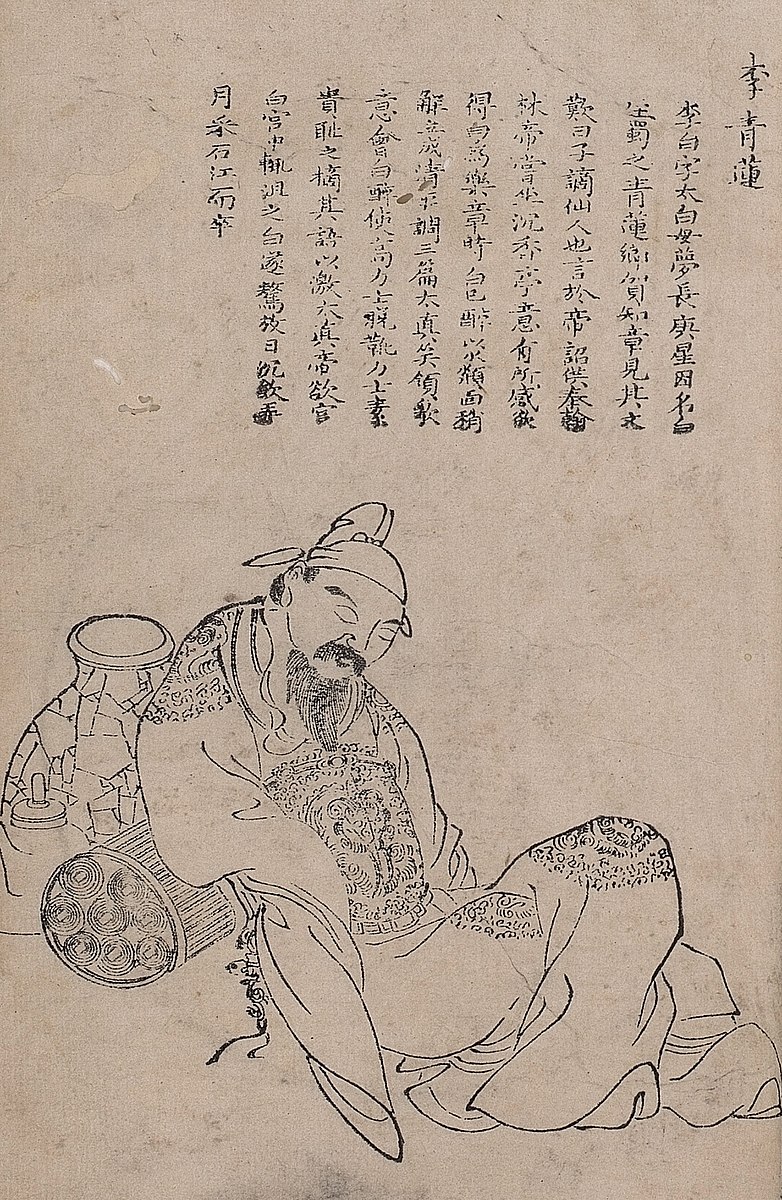 李青蓮
李白字太白母夢長庚星因名白
生蜀之青蓮鄉賀知章見其文
歎曰子謫仙人也言於帝詔供奉翰
林帝嘗坐沉香亭意有所感欲
得白為樂章時白已醉以水頮面稍
解立成清平調三篇太真笑領歌
意會白醉使高力士脫靴力士素
貴恥之摘其語以激太真帝欲官
白宮中輒沮之白遂驁放日沉飲弄
月采石江而卒